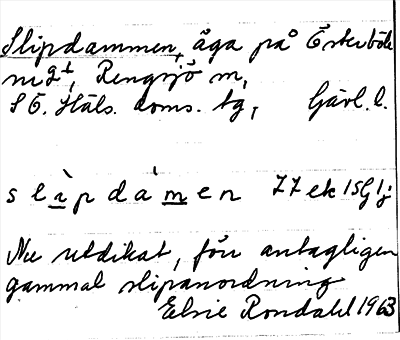 Slipdammen, äga på Österböle
nr 2¹, Rengsjö sn,
S Ö. Häls. doms. tg, Gävl. l.
slìpdámen
Nu utdikat, förr antagligen
gammal slipanordning
Elsie Rondahl 1963